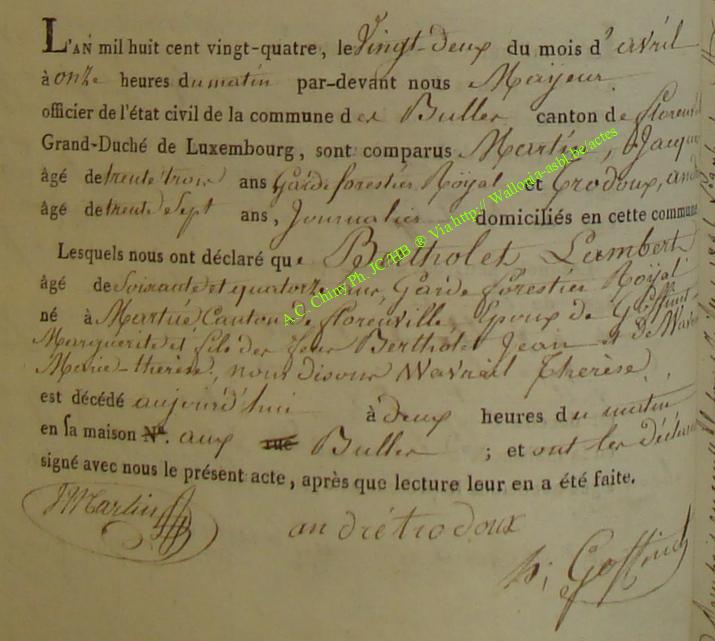 L'AN mil huit cent vingt-quatre, le Vingt-deux du mois d' avril
à onze heures du matin par-devant nous Mayeur
officier de l'état civil de la commune des Bulles canton de florenv
Grand-Duché de Luxembourg, sont comparus Martin, Jacque
âgé de trente trois ans Garde forestier Royal et trodoux, and
âgé de trente Sept ans, Journalier domiciliés en cette commune
Lesquels nous ont déclaré que Bertholet Lambert
âgé de Soixante et quatorze ans, Garde forestier Royal
né à Martué, Canton de florenville, Epoux de Goffinet
Marguerite et fils des feus Bertholet Jean et De Wavr
Marie-therèse, nous disons Wavrail Therèse
est décédé aujourd'hui à deux heures du matin
en sa maison N°. aux rue Bulles ; et ont les déclara
signé avec nous le présent acte, après que lecture leur en a été faite.
JMartin
andrétrodoux
Goffinet
A.C. Chiny Ph. JC/HB ® Via http:// Wallonia-asbl.be/actes